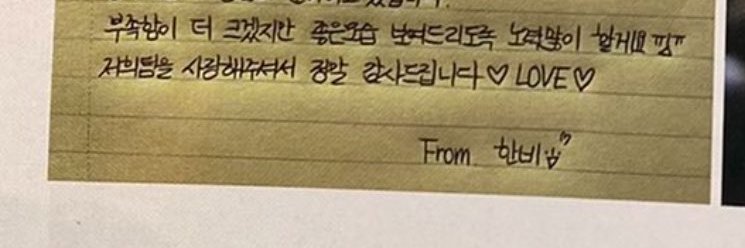 부족함이 더 크겠지만 좋은모습 보여드리도록 노력많이 할게요 ㅠㅠ
저희팀을 사랑해주셔서 정말 감사드립니다♡ LOVE♡
From 한비